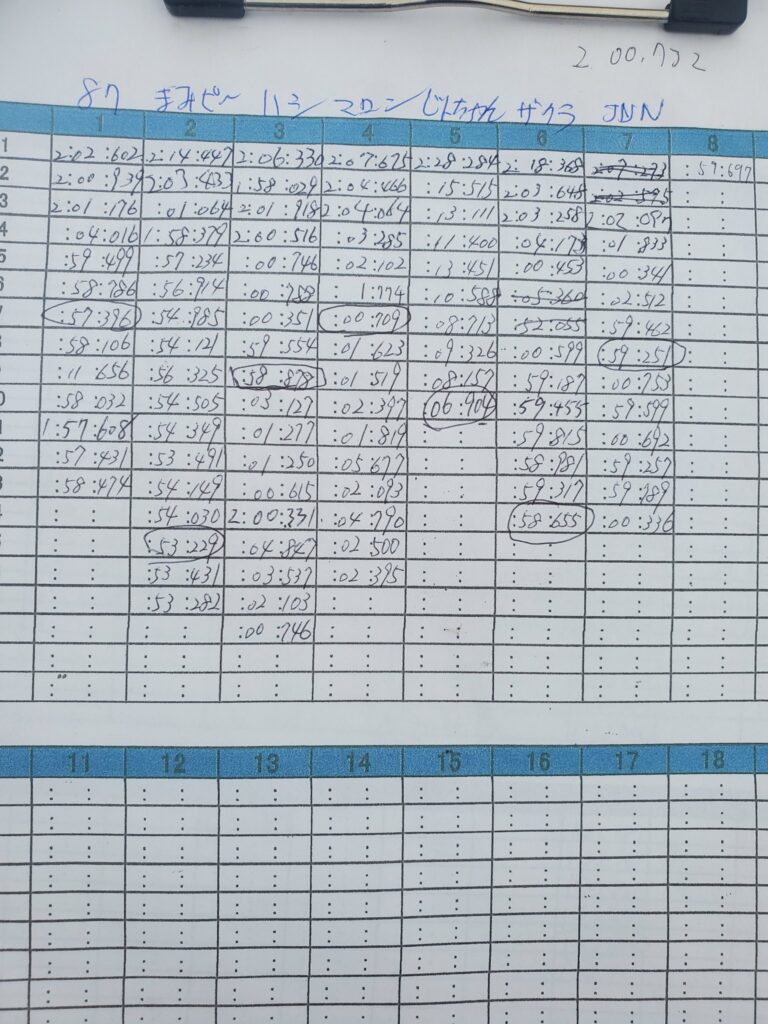 2 00.732
87 まみピー ハシ マロン じいちゃん ザクラ JNN
1 2 3 4 5 6 7 8
1 2:02:602 2:14:447 2:06:330 2:07:675 2:28:284 2:18:368 2:07:273 :59:697
2 2:00:939 2:03:433 1:58:029 2:04:466 :15:515 2:03:648 2:02:595 : :
3 2:01:176 :01:064 2:01:918 2:04:064 :13:111 2:03:258 2:02:097 : :
4 :04:016 1:58:379 2:00:516 :03:285 :11:400 :04:173 :01:833 : :
5 :59:499 :57:234 :00:746 :02:102 :13:451 :00:453 :00:341 : :
:58:786 :56:914 :00:758 1:774 :10:588 :05:360 :02:512 : :
:57:396 :54:985 :00:351 :00:709 :08:713 :52:055 :59:462 : :
:58:106 :54:121 :59:554 :01:623 :09:326 :00:599 :59:251 : :
:11:656 :56:325 :58:878 :01:519 :08:157 :59:187 :00:753 : :
:58:032 :54:505 :03:127 :02:397 :06:904 :59:455 :59:599 : :
1:57:608 :54:349 :01:277 :01:819 : : :59:815 :00:692 : :
:57:431 :53:491 :01:250 :05:677 : : :58:981 :59:257 : :
:58:474 :54:149 :00:615 :02:093 : : :59:317 :59:989 : :
: : :54:030 2:00:331 :04:790 : : :58:655 :00:336 : :
: : :53:229 :04:847 :02:500 : : : : : : : :
: : :53:431 :03:537 :02:395 : : : : : : : :
: : :53:282 :02:103 : : : : : : : : : :
: : : : :00:746 : : : : : : : : : :
11 12 13 14 15 16 17 18